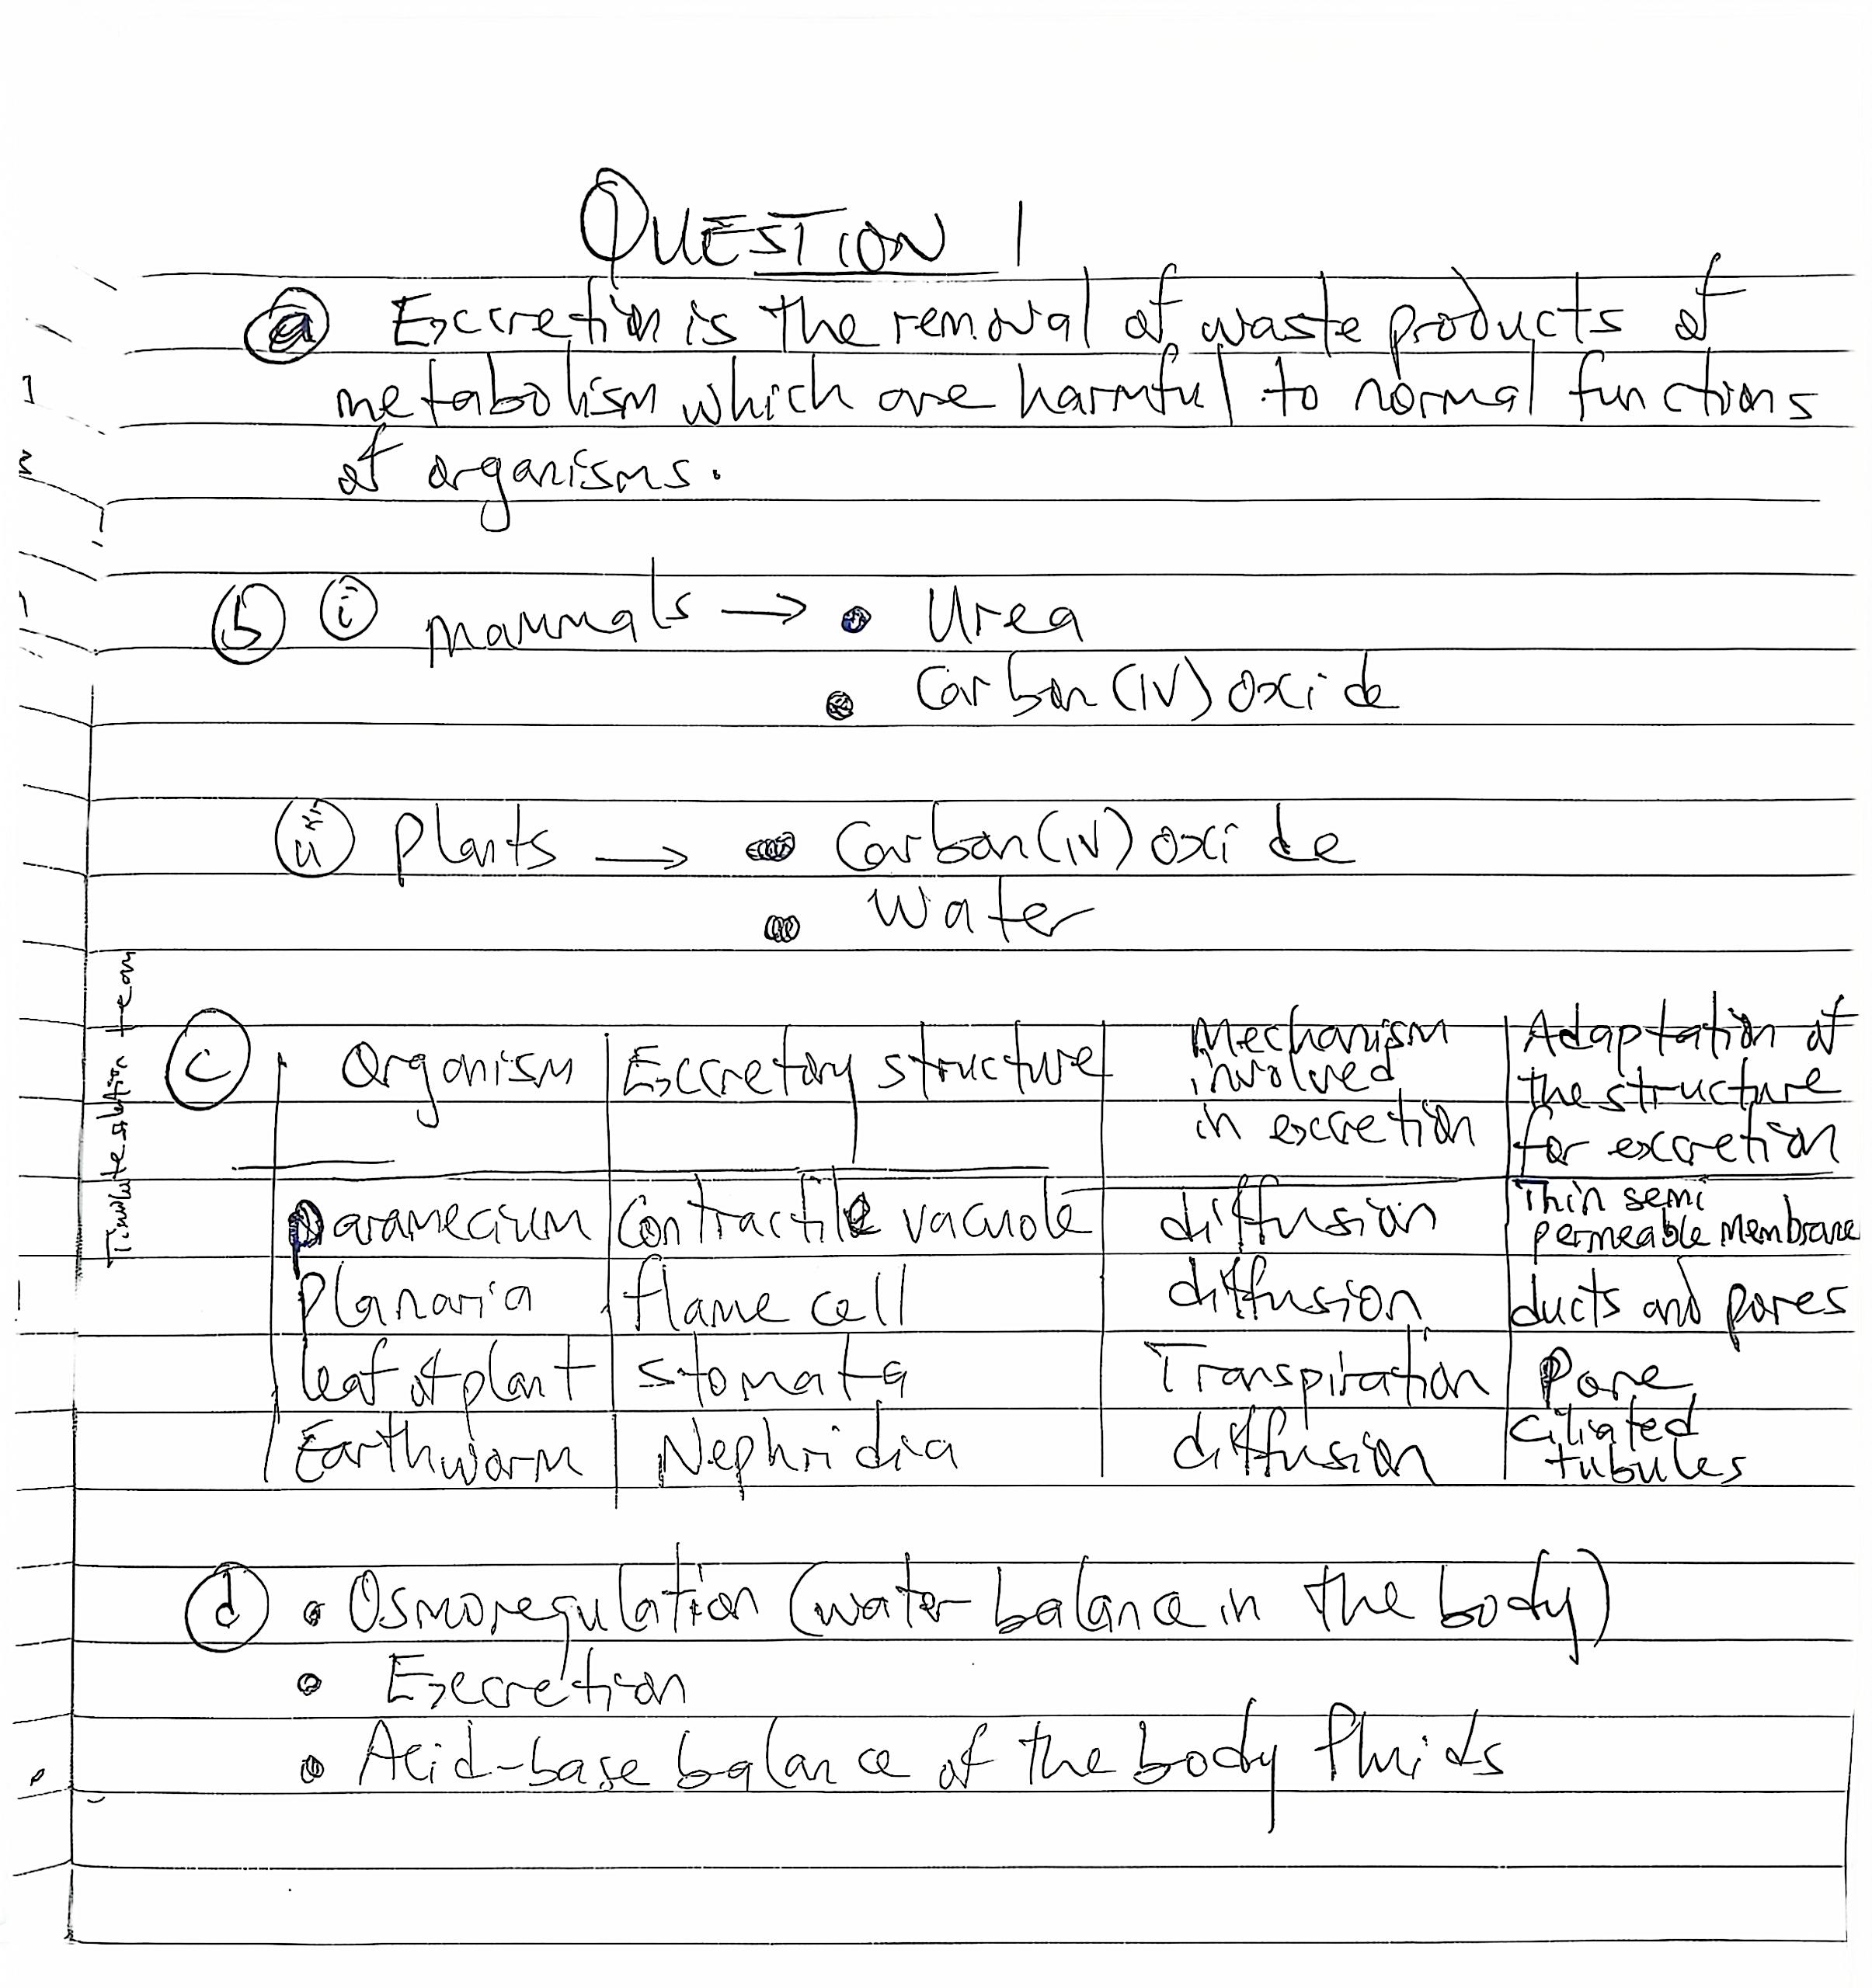 QUESTION 1
(a) Excretion is the removal of waste products of
metabolism which are harmful to normal functions
of organisms.
(b) (i) mammals → • Urea
• Carbon(IV)oxide
(ii) plants → • Carbon(IV)oxide
• Water
(c) Organism | Excretory structure | Mechanism involved in excretion | Adaptation of the structure for excretion
Paramecium | Contractile vacuole | diffusion | Thin semi permeable membrane
Planaria | flame cell | diffusion | ducts and pores
leaf of plant | stomata | Transpiration | Pore
Earthworm | Nephridia | diffusion | Ciliated tubules
(d) • Osmoregulation (water balance in the body)
• Excretion
• Acid-base balance of the body fluids
team